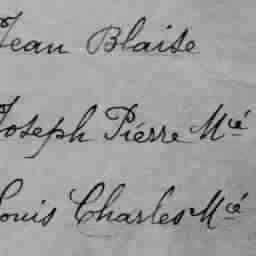 Jean Blaise
Joseph Pierre Mié
Louis Charles Mié